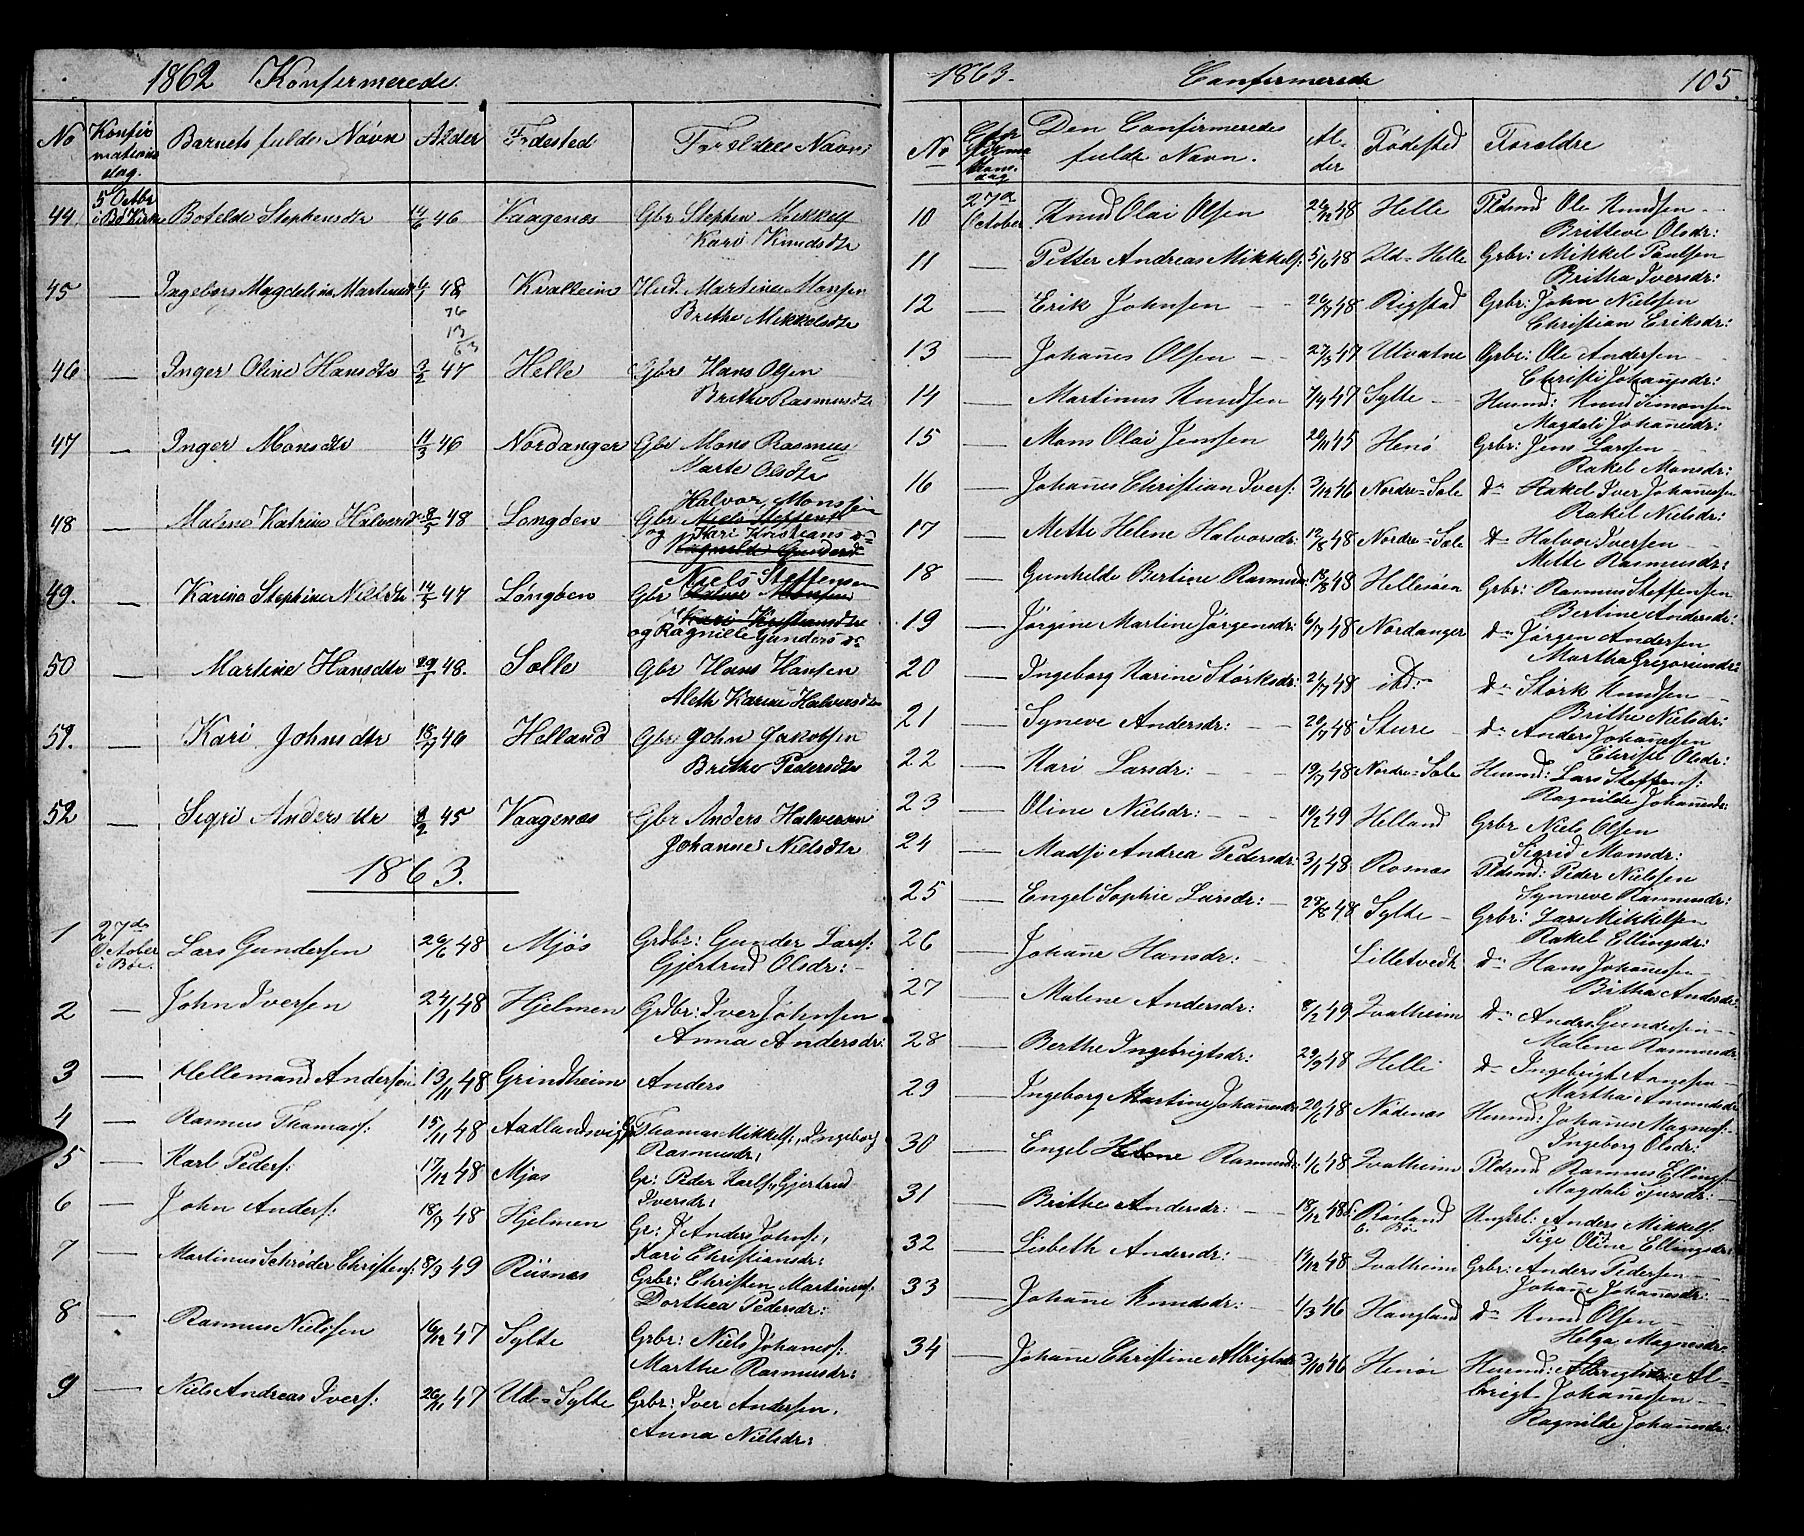 1862 Konfirmerede
No Konfir mations dag. Barnets fulde Navn Alder Fødested Foreldres Navn
44 5 Octbr i Bø Kirke Botelde Stephensdtr 14/6 46 Vaagenæs Gbr Stephen Mikkels
Kari Knudsdtr
45 — Ingeborg Magdelina Martinsd 48 Kvalleim Husd. Martinus Monsen
76 Brithe Mikkelsdtr
13/63
46 — Inger Oline Hansdtr 3/2 47 Helle Gbr Hans Olsen
Brithe Rasmusdtr
47 — Inger Monsdtr 11/3 46 Nordanger Gbr Mons Rasmus
Marte Olsdtr
Halvor Monsen
48 — Malene Katrine Halvorsd 8/5 48 Longøen Gbr Niels Steffensen
og Kari Kristians dr
Ragnilde Gundersd
Niels Steffensen
49. — Karina Stephine Nielsdtr 14/5 47 Løngøen Gbr Monsen
Kari Kristiansdtr
og Ragnille Gunders dr
50 — Martine Hansdtr 29/7 48. Solle Gbr Hans Hansen
Aleth Karine Halversdtr
51. — Kari Johnsdtr 18/7 46 Helland Gbr John Jakobsen
Brithe Pedersdtr
52 — Sigri Andersdtr 9/2 45 Vaagenæs Gbr Anders Halversen
Johanne Nielsdtr
1863.
1 27de October i Bøe. Lars Gundersen 26/6 48 Mjøs Grdbr: Gunder Lars:
Gjertrud Olsdr: —
2 — John Iversen 24/1 48 Hjelmen Grdbr: Iver Johnsen
Anna Andersdr:
3 — Hellemand Andersen 13/11 48 Grindheim Anders
4 — Rasmus Thomass: 15/11 48 Aadlandsvig Thomas Mikkels:, Ingeborg
Rasmusdr:
5 — Karl Peders: 17/12 48 Mjøs Gr: Peder Karls:, Gjertrud
Iversdr:
6 — John Anders: 18/7 48 Hjelmen Gr: J Anders Johns:,
Kari Christiansdr:
7 — Martinus Schrøder Christens: 8/3 49 Risnæs Grbr: Christen Martinus:
Dorthea Pedersdr:
8 — Rasmus Nielsen 16/12 47 Sylte Grbr: Niels Johannes:
Marthe Rasmusdr:
9 — Niels Andreas Ivers: 26/11 47 Ude=Sylte Grbr: Iver Andersen,
Anna Nielsdr:
1863. Confirmerede 105.
No Con firma tions dag Den Confirmeredes fulde Navn. Al- der Fødested Forældre
10 27de October Knud Olai Olsen 26/12 48 Helle Pldsmd Ole Knudsen —
Britteve Olsdr:
11 — Petter Andreas Mikkels: 5/6 48 Ud=Helle Grbr: Mikkel Paulsen
Britha Iversdr:
12 — Erik Johnsen — 26/9 48 Rigstad Grbr: John Nielsen
Christian Eriksdr:
13 — Johanes Olsen — 27/3 47 Ulvatne Grbr: Ole Andersen —
Christi Johanesdr:
14 — Martinus Knudsen 7/9 47 Sylte — Husmd: Knud Simonsen
Magdeli Johanesdr:
15 — Mons Olai Jensen 20/11 45 Henø Grbr: Jens Larsen —
Rakel Monsdr:
16 — Johanes Christian Ivers: 3/12 46 Nordre=Sæle do Rakel Iver Johanessen
Rakel Nielsdr:
17 — Mette Helene Halvorsdr: 12/8 48 Nordre=Sæle do Halvor Iversen —
Mette Rasmusdr:
18 — Gunhelde Bertine Rasmusdr 13/8 48 Hellesøen Grbr: Rasmus Steffensen
Bertine Andersdr:
19 — Jørgine Martine Jørgensdr: 6/7 48 Nordanger do Jørgen Andersen
Martha Gregoriusdr:
20 — Ingeborg Karine Størksdr: 24/7 48 ibd: do Størk Knudsen —
Brithe Nielsdr:
21 — Syneve Andersdr: — 29/7 48 Sture — do Anders Johanessen
Christi Olsdr:
22 — Kari Larsdr: — 19/7 48 Nordre=Sæle Husmd: Lars Steffens:
Ragnilde Johanesdr:
23 — Oline Nielsdr: — 19/2 49 Helland Grbr Niels Olsen
Sigrid Monsdr:
24 — Madsi Andrea Pedersdr: 3/1 48 Rosnæs Pldsmd: Peder Nielsen
Synneve Rasmusdr:
25 — Engel Sophie Larsdr: — 28/8 48 Sylte — Grbr: Lars Mikkelsen
Rakel Ellingsdr:
26 — Johane Hansdr: — Lilletvedt do Hans Johanessen —
Britha Andersdr:
27 — Malene Andersdr: 8/2 49 Kvalheim do Anders Gundersen —
Malene Rasmusdr:
28 — Berthe Ingebrigtsdr: 29/9 48 Helle do Ingebrigt Arnesen —
Martha Amundsdr
29 — Ingeborg Martine Johanesdr 20/6 48 Nødenæs Husmd: Johanes Magnes:
Ingeborg Olsdr:
30 — Engel Helene Rasmusdr: 1/6 48 Kvalheim Pldsmd Rasmus Ellings:
Magdeli
31 — Brithe Andersdr: — 18/12 48 Røsland Ungkrl: Anders Mikkels:
e. Bø Pige Oline Ellingsdr:
32 — Lisbeth Andersdr: — 19/12 48 Kvalheim Grbr: Anders Pedersen —
Johane Johanesdr:
33 — Johane Knudsdr: — 1/3 46 Hangland do Knud Olsen —
Helga Magnesdr:
34 — Johane Christine Albrigtsdr 3/10 46 Henøe Husmd: Albrigtsdr: Al-
brigt Johanessen —
Ragnilde Johanesdr: